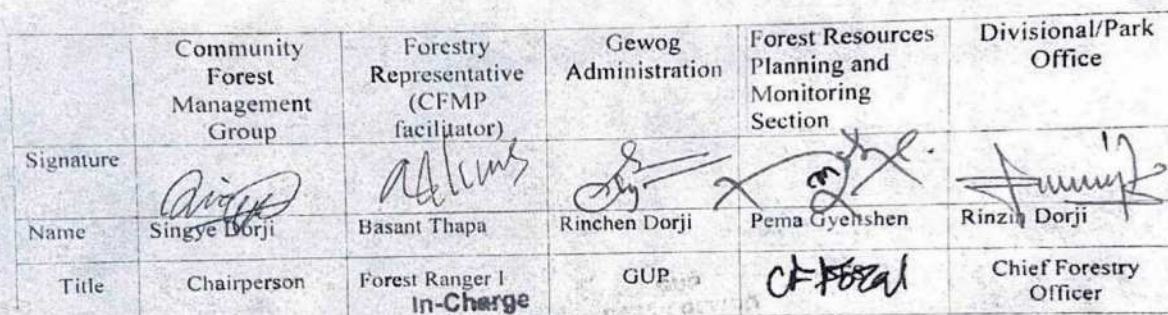 Community Forest Management Group
Forestry Representative (CFMP facilitator)
Gewog Administration
Forest Resources Planning and Monitoring Section
Divisional/Park Office
Signature
Name Singye Dorji Basant Thapa Rinchen Dorji Pema Gyeltshen Rinzin Dorji
Title Chairperson Forest Ranger I In-Charge GUP CF Focal Chief Forestry Officer